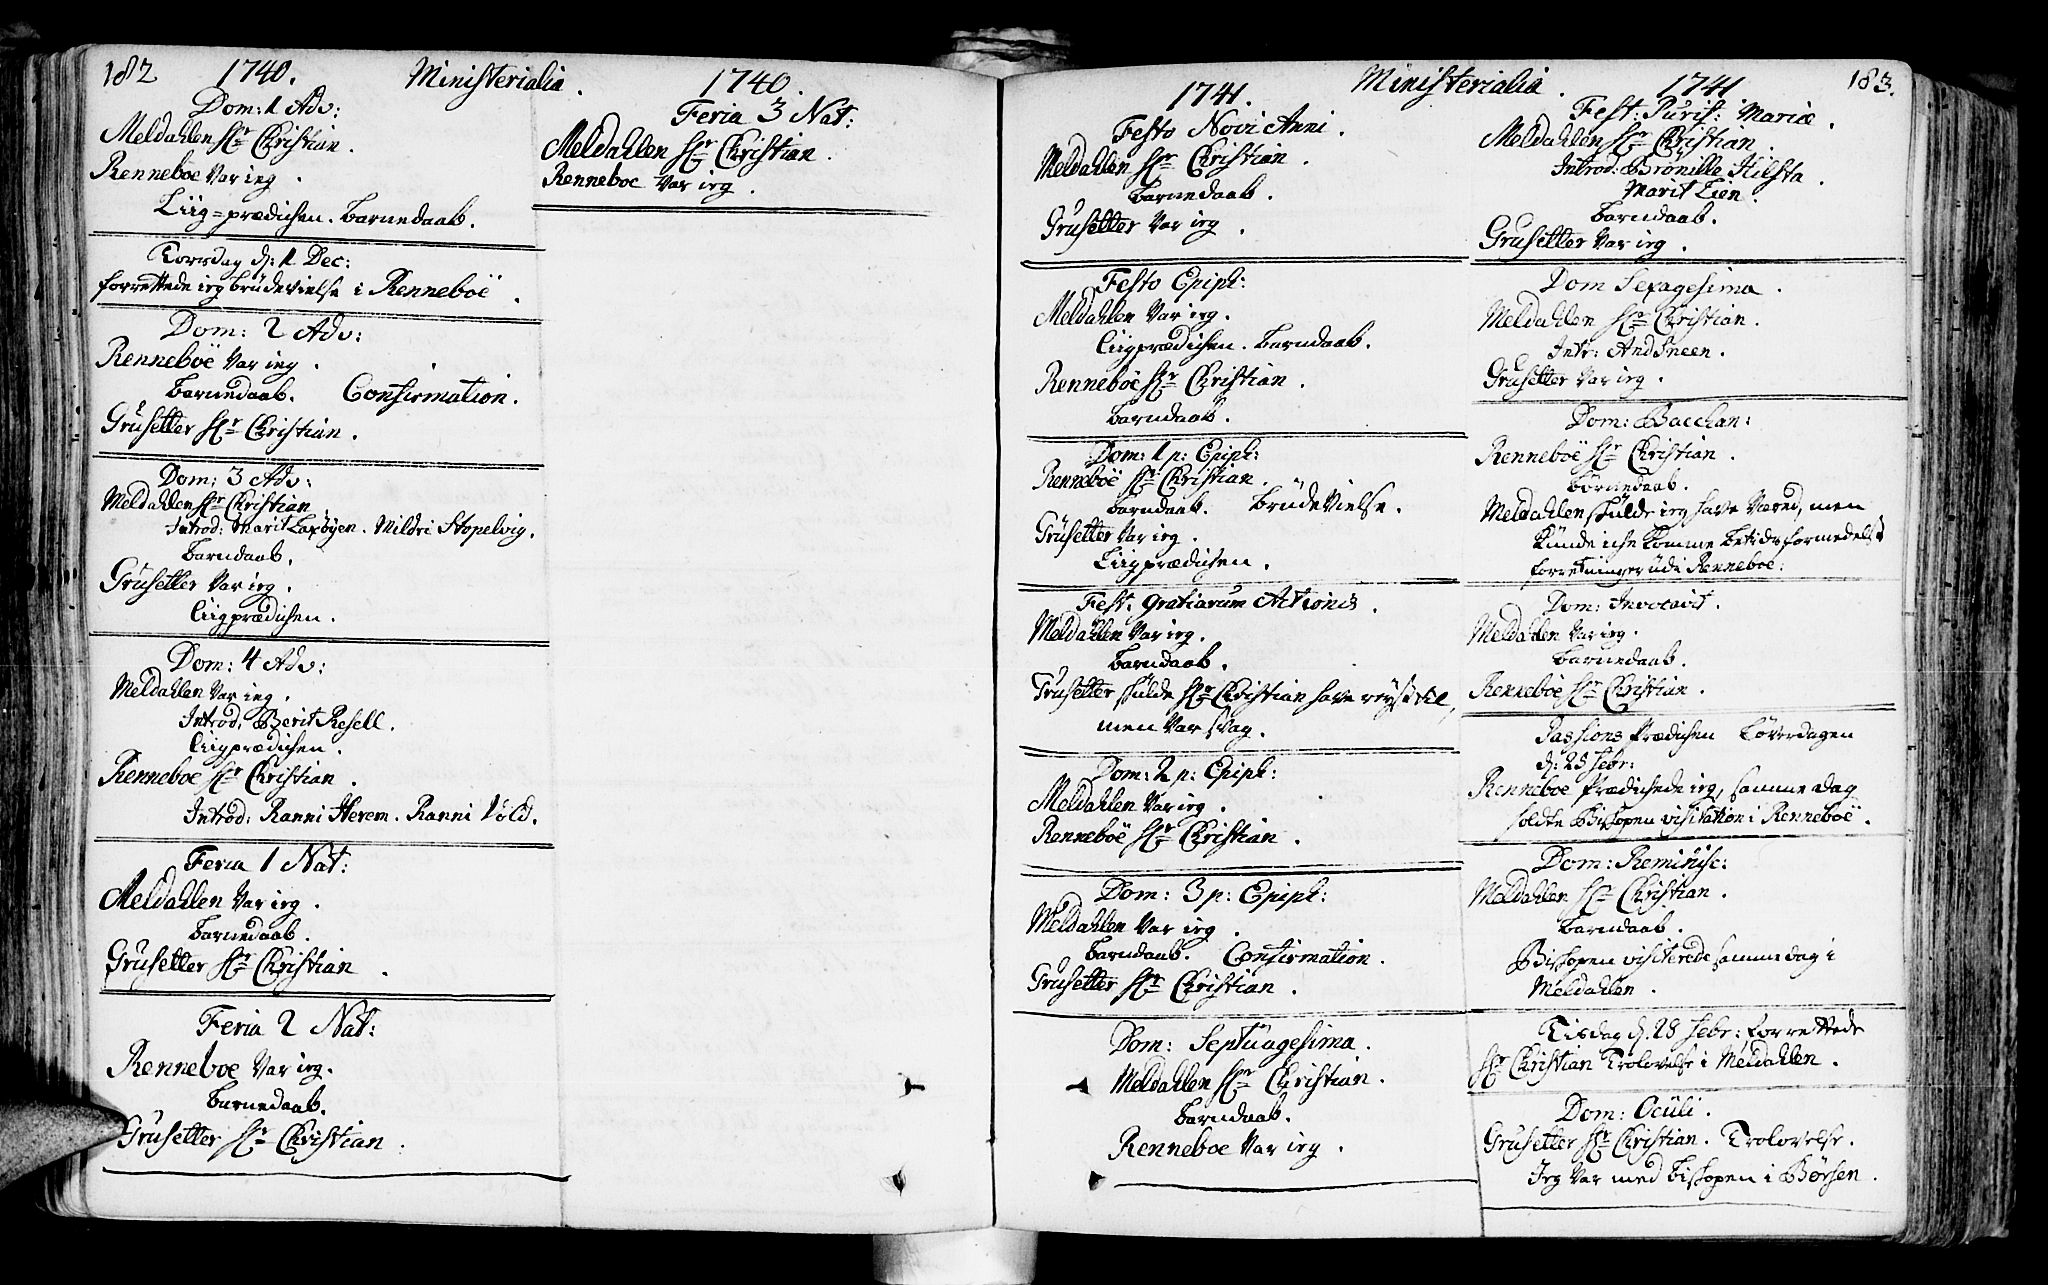 182 1740. Ministerialia. 1740.
Dom: 1 Adv:
Meldahlen Hr Christian.
Renneboe Var ieg.
Liig=prædichen. barnedaab.
Torsdag d: 1 Dec:
forrettede ieg brüdevielse i Renneböe.
Dom: 2 Adv:
Renneböe Var ieg.
barnedaab. Confirmation.
Grüsetter Hr Christian.
Dom: 3 Adv:
Meldahlen Hr Christian.
Introd: Marit Laxøyen. Mildri Stopelvig.
barndaab.
Grüsetter Var ieg.
Liigprædichen.
Dom: 4 Adv:
Meldahlen Var ieg.
Introd, Berit Resell.
Liigprædichen.
Renneboe Hr Christian.
Introd: Ranni Herem. Ranni Vold.
Feria 1 Nat:
Meldahlen Var ieg.
barnedaab.
Grüsetter Hr Christian.
Feria 2 Nat:
Renneboe Var ieg.
barnedaab.
Grüsetter Hr Christian.
Feria 3 Nat:
Meldahlen Hr Christian.
Renneboe Var ieg.
1741. Ministerialia. 1741 183.
Festo Novi Anni.
Meldahlen Hr Christian.
barnedaab.
Grüsetter Var ieg.
Festo Epiph:
Meldahlen Var ieg.
Liigprædichen. barndaab.
Renneböe Hr Christian.
barndaab.
Dom: 1 p: Epiph:
Renneböe Hr Christian.
barndaab. brüdeVielse.
Grüsetter Var ieg.
Liigprædichen.
Fest: Gratiarum Actionis.
Meldahlen Var ieg.
barndaab.
Grüsetter skulde Hr Christian have reyst til,
men Var svag.
Dom: 2 p: Epiph:
Meldahlen Var ieg.
Renneböe Hr Christian.
Dom: 3 p: Epiph:
Meldahlen Var ieg.
barndaab. Confirmation.
Grüsetter Hr Christian.
Dom: Septüagesima.
Meldahlen Hr Christian.
barndaab.
Renneboe Var ieg.
Fest: Purif: Mariæ.
Meldahlen Hr Christian.
Introd: Brønille Hilsta.
Marit Lien.
barndaab.
Grüsetter Var ieg.
Dom Sexagesima.
Meldahlen Hr Christian.
Intr: And Sneen.
Grüsetter Var ieg.
Dom: Bacchan:
Renneböe Hr Christian.
børnedaab.
Meldahlen skülde ieg have Været, men
künde iche komme betids formedelst
forretninger üdi Renneboe:
Dom: Invocavit.
Meldahlen Var ieg.
barnedaab.
Renneböe Hr Christian.
Passions Prædichen Løverdagen
d: 25 Febr:
Renneboe Prædichede ieg, samme dag
holdte Bispen visitation i Renneböe.
Dom: Reminisc:
Meldahlen Hr Christian.
barndaab.
Bispen visiterede samme dag i
Meldahlen.
Tisdag d. 28 Febr: forrettede
Hr Christian Trolovelse i Meldahlen.
Dom: Ocüli.
Grüsetter Hr Christian. Trolovelse.
Jeg Var med bispen i Børsen.